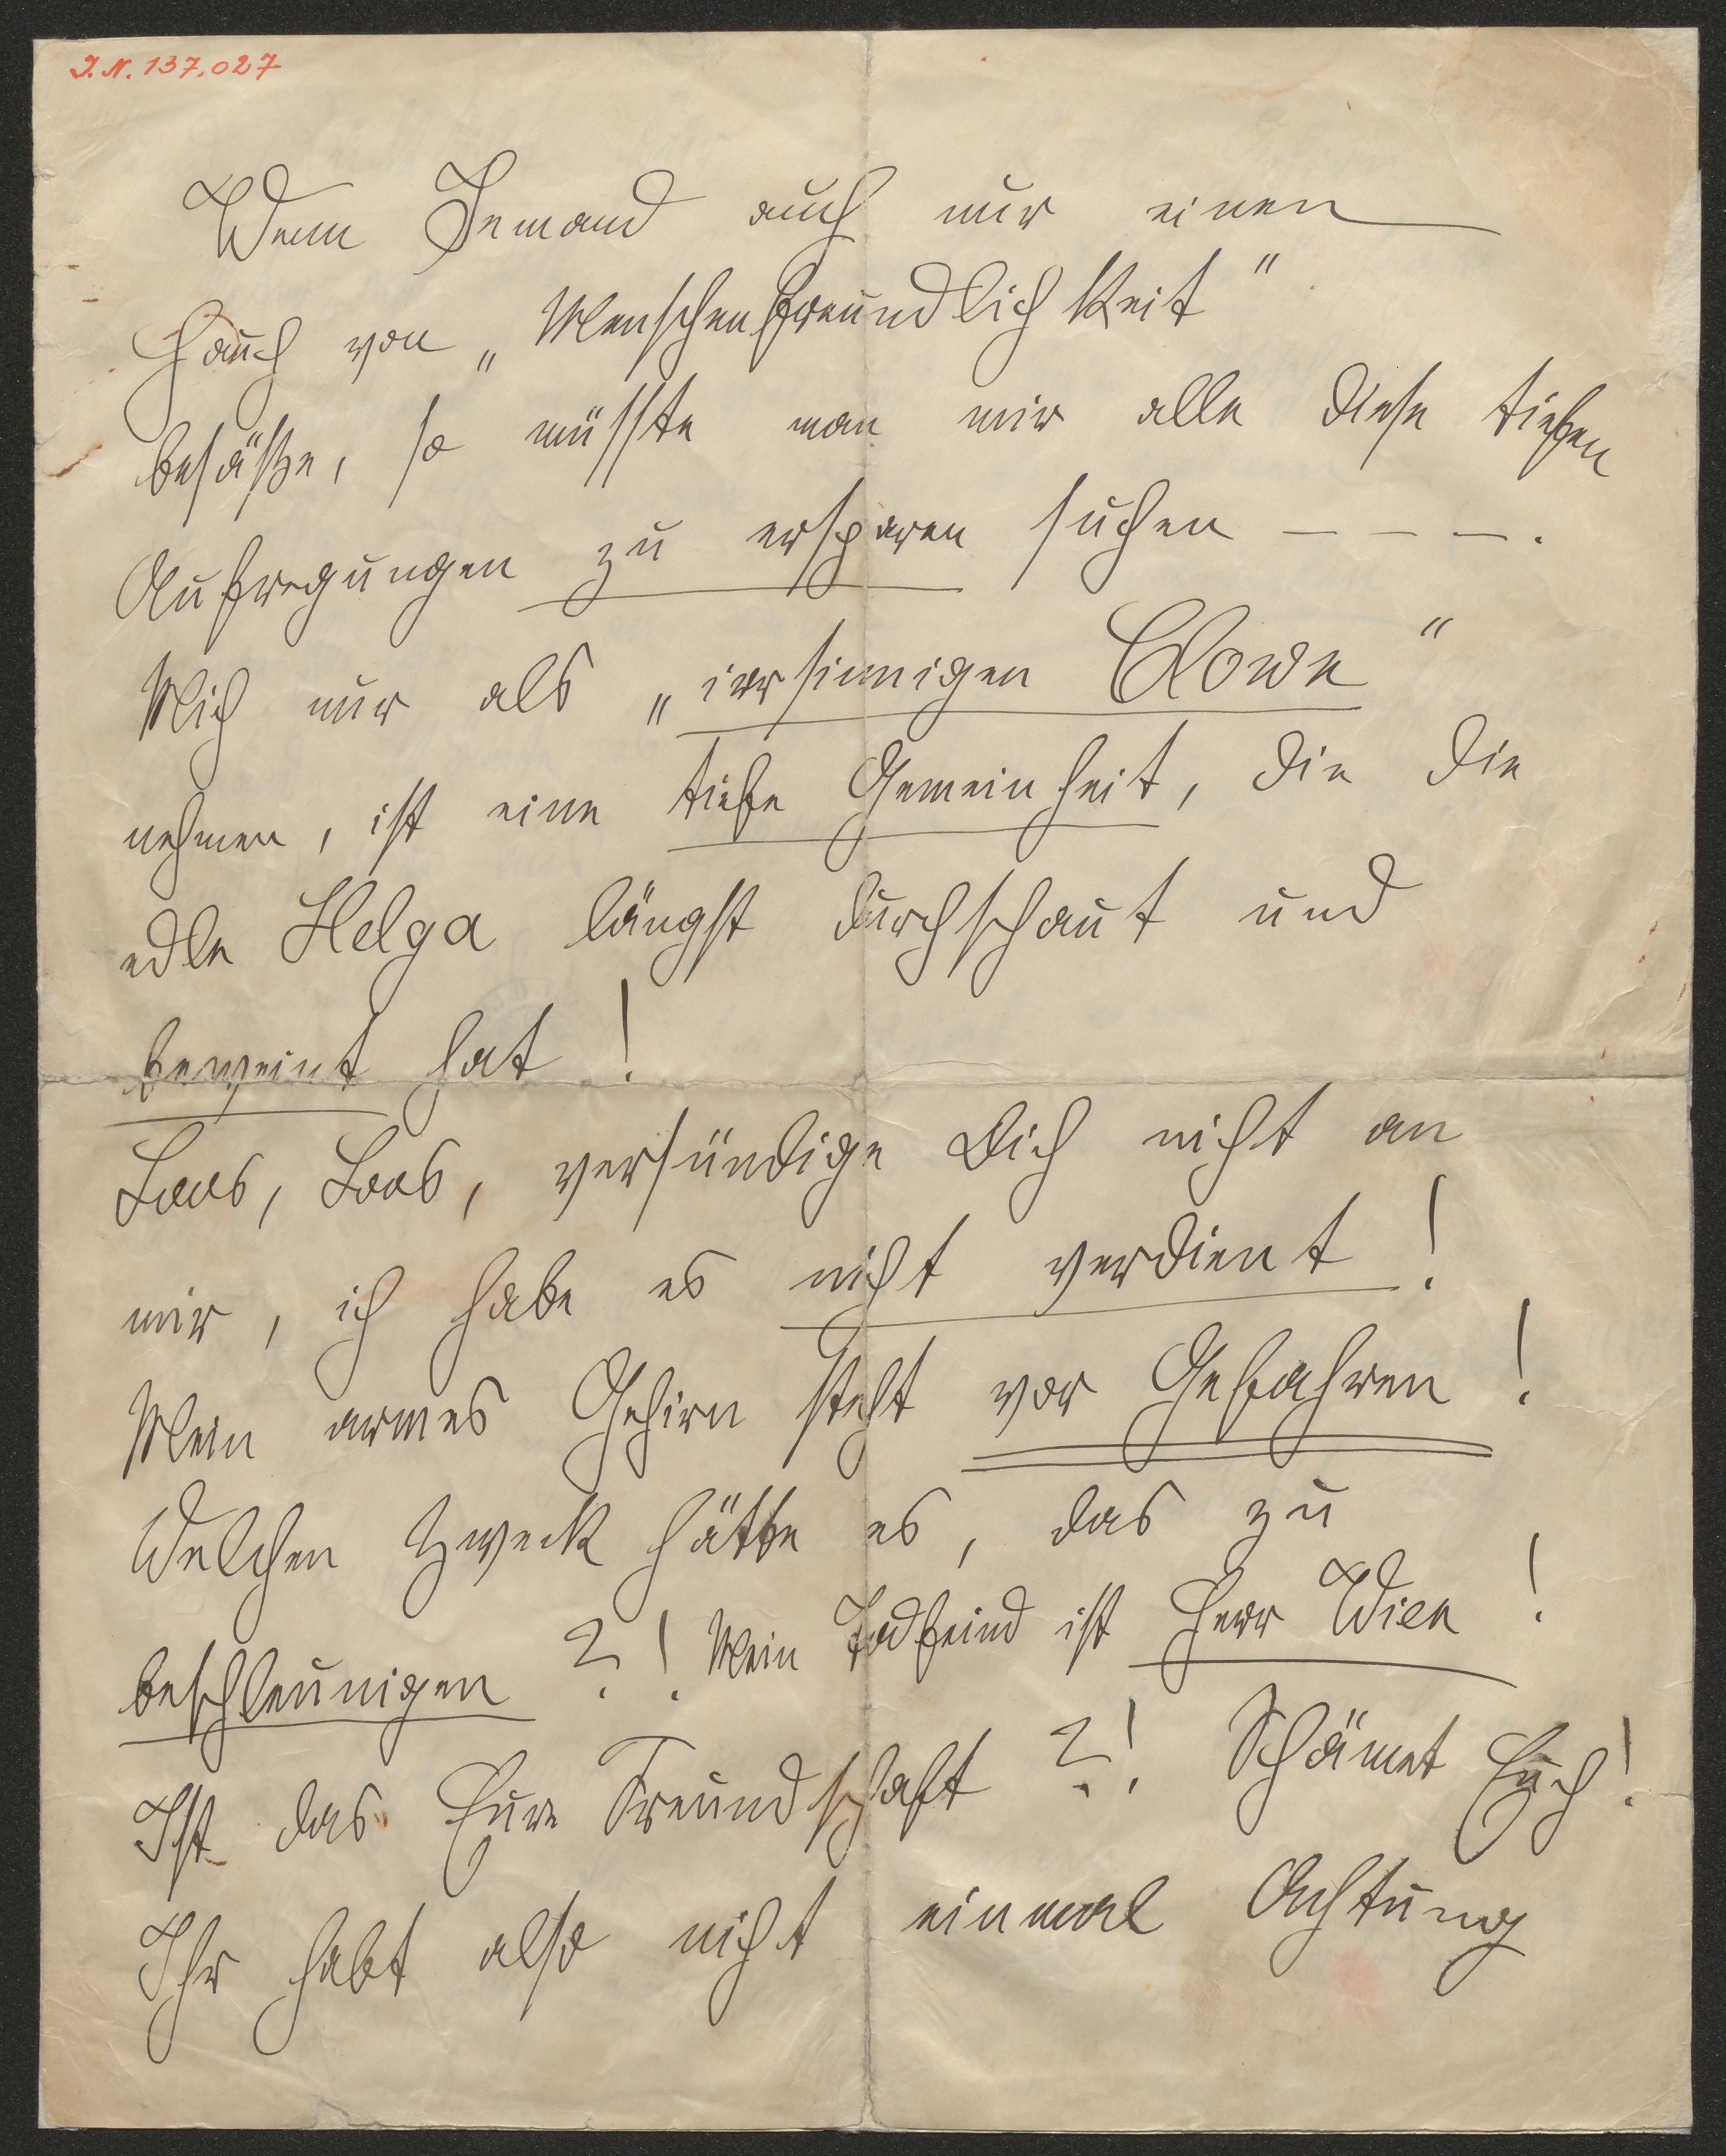 I.N. 137.027
Wenn Jemand auch nur einen
Hauch von „Menschenfreundlichkeit"
besäße, so müsste man mir alle diese tiefen
Aufregungen zu ersparen suchen - - - .
Mich nur als „irrsinnigen Clown"
nehmen, ist eine tiefe Gemeinheit, die die
edle Helga längst durchschaut und
beweint hat!
Loos, Loos, versündige Dich nicht an
mir, ich habe es nicht verdient!
Mein armes Gehirn steht vor Gefahren!
Welchen Zweck hätte es, das zu
beschleunigen ?! Mein Todfeind ist Herr Wien!
Ist das Eure Freundschaft ?! Schämet Euch!
Ihr habt also nicht einmal Achtung